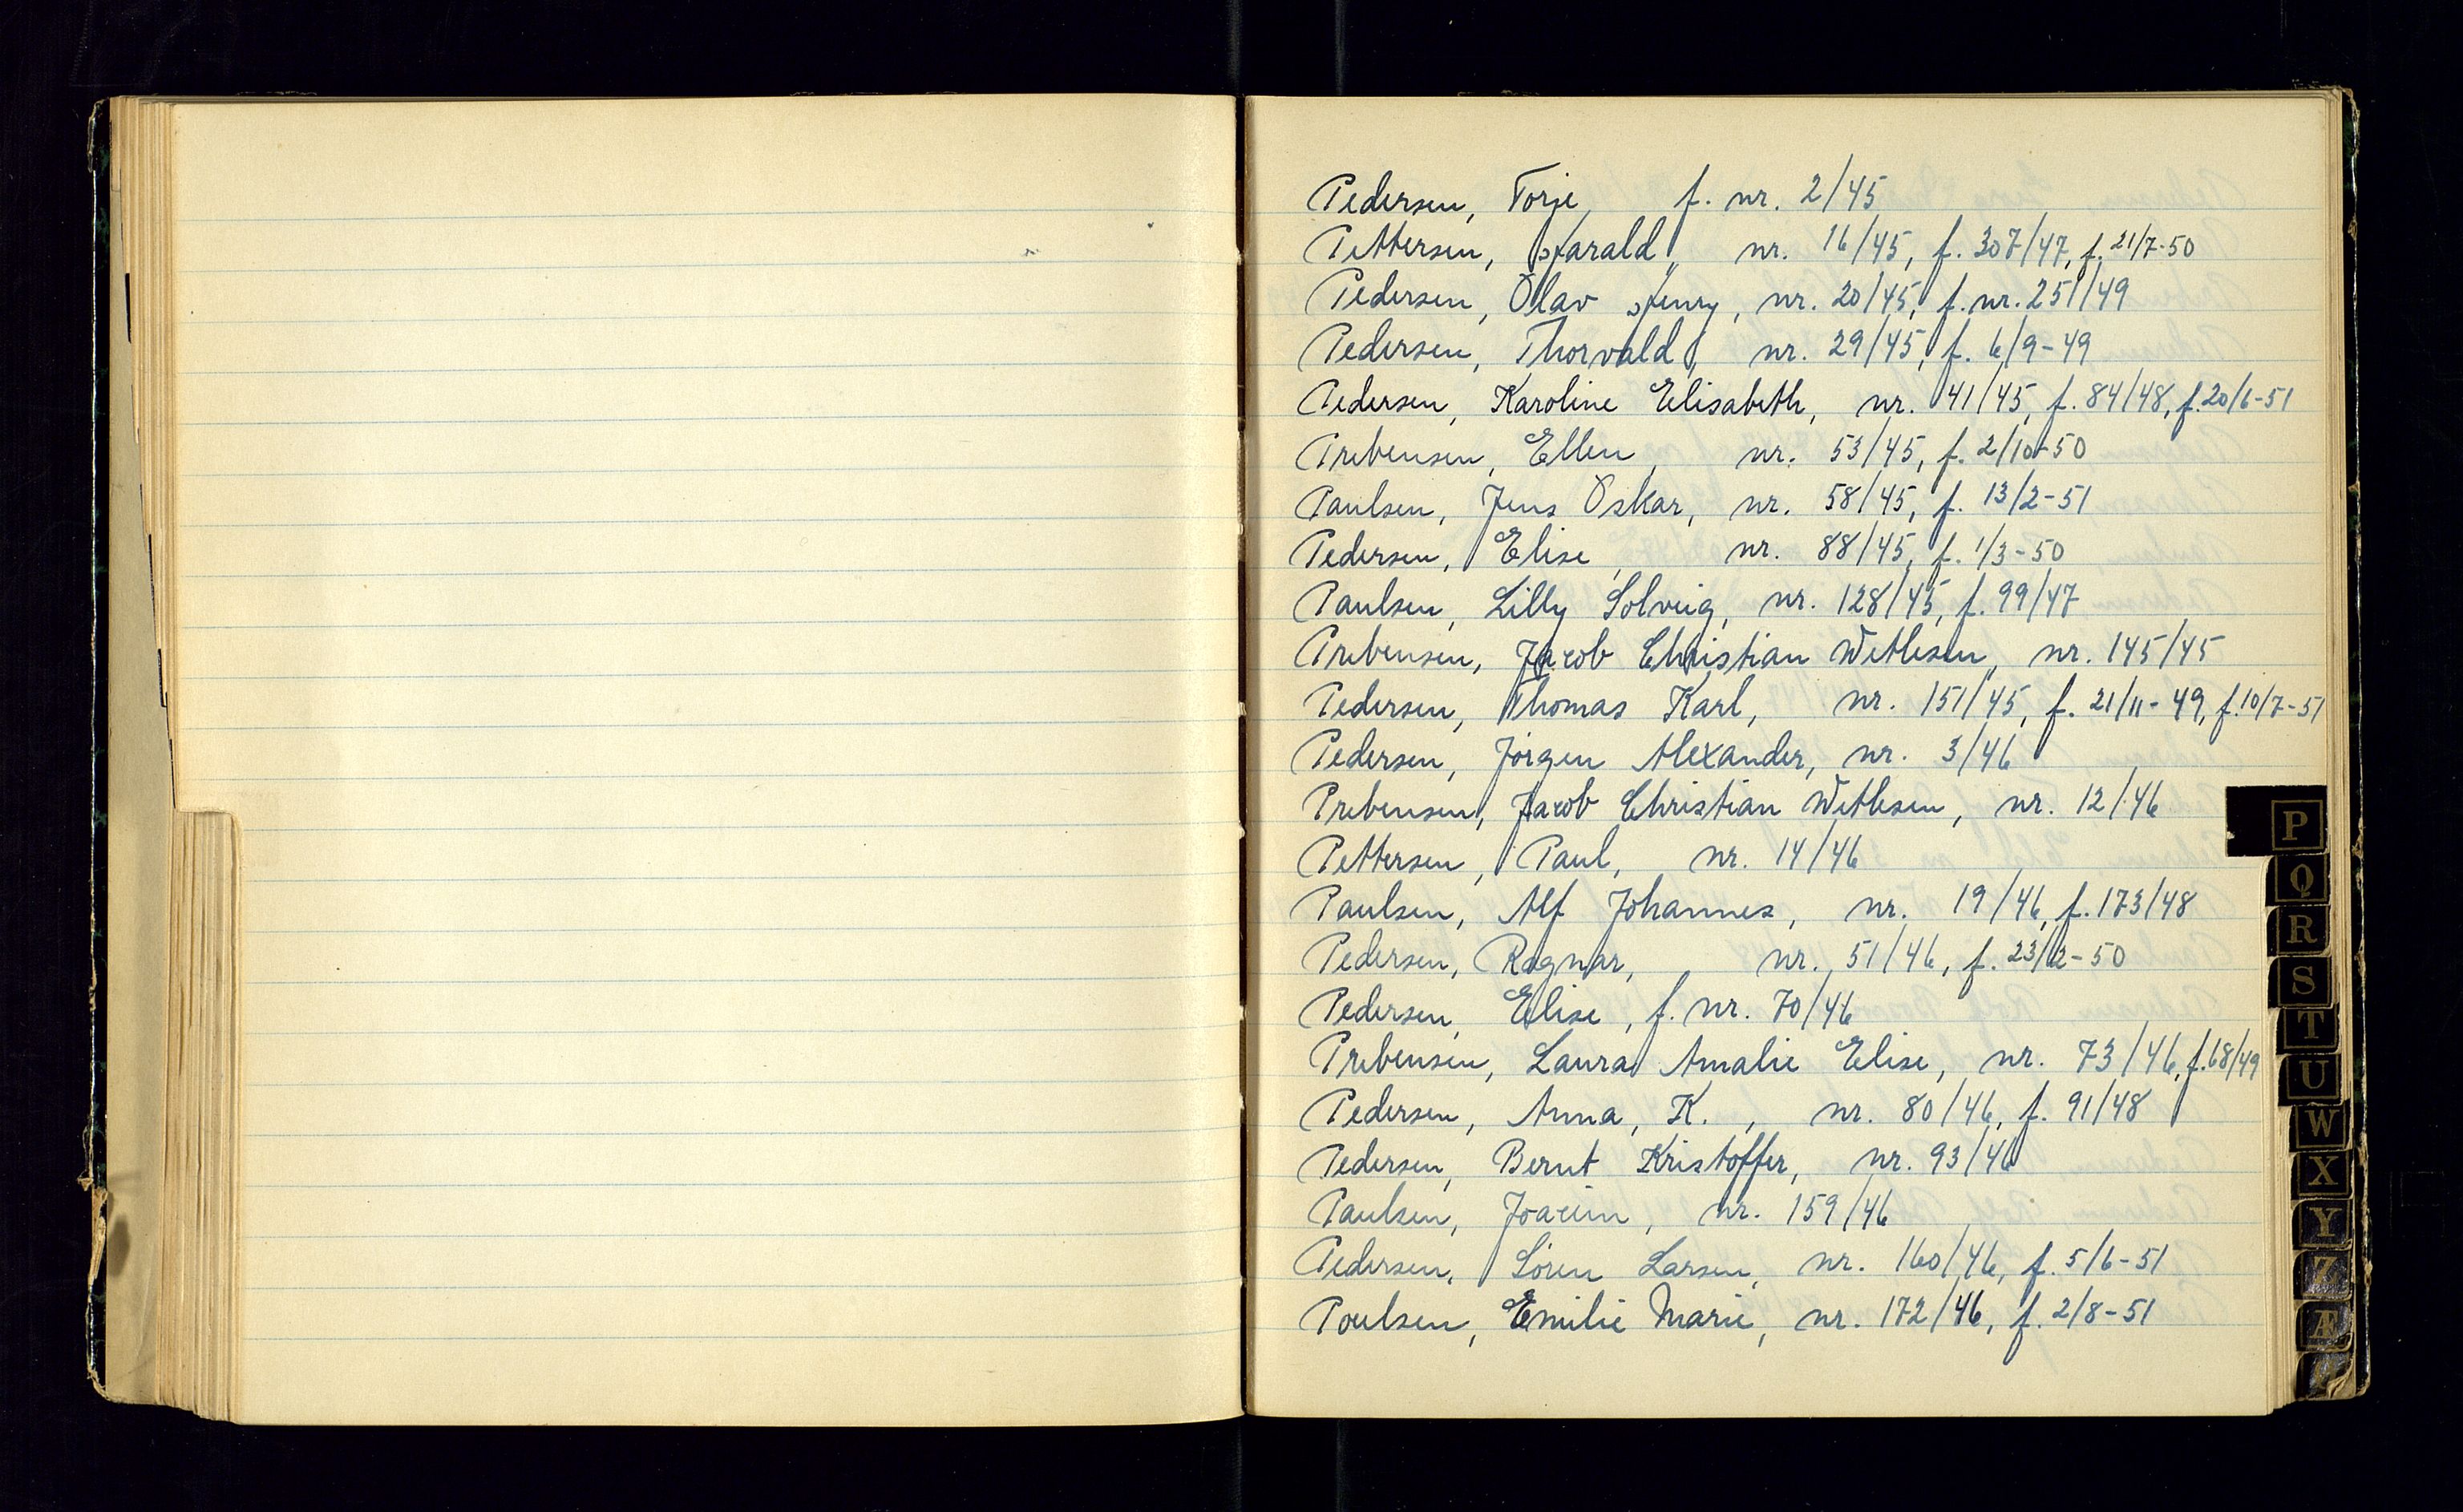 Pedersen, Torje, f. nr. 2/45
Pettersen, Harald, nr. 16/45, f. 307/47, f. 21/7-50
Pedersen, Olav Henry, nr. 20/45, f. nr. 251/49
Pedersen, Thorvald, nr. 29/45, f. 6/9-49
Pedersen, Karoline Elisabeth, nr. 41/45, f. 84/48, f. 20/6-51
Prebensen, Ellen, nr. 53/45, f. 2/10-50
Paulsen, Jens Oskar, nr. 58/45, f. 13/2-51
Pedersen, Elise, nr. 88/45, f. 1/3-50
Paulsen, Lilly Solveig, nr. 128/45, f. 99/47
Prebensen, Jacob Christian Wetlesen, nr. 145/45
Pedersen, Thomas Karl, nr. 151/45, f. 21/11-49, f. 10/7-51
Pedersen, Jörgen Alexander, nr. 3/46
Prebensen, Jacob Christian Wetlesen, nr. 12/46
Pettersen, Paul, nr. 14/46
Paulsen, Alf Johannes, nr. 19/46, f. 173/48
Pedersen, Ragnar, nr. 51/46, f. 23/2-50
Pedersen, Elise, f. nr. 70/46
Prebensen, Laura Amalie Elise, nr. 73/46, f. 68/49
Pedersen, Anna, K., nr. 80/46, f. 91/48
Pedersen, Bernt Kristoffer, nr. 93/46
Paulsen, Joacim, nr. 159/46
Pedersen, Sören Larsen, nr. 160/46, f. 5/6-51
Poulsen, Emilie Marie, nr. 172/46, f. 2/8-51
P
Q
R
S
T
U
W
X
Y
Z
Æ